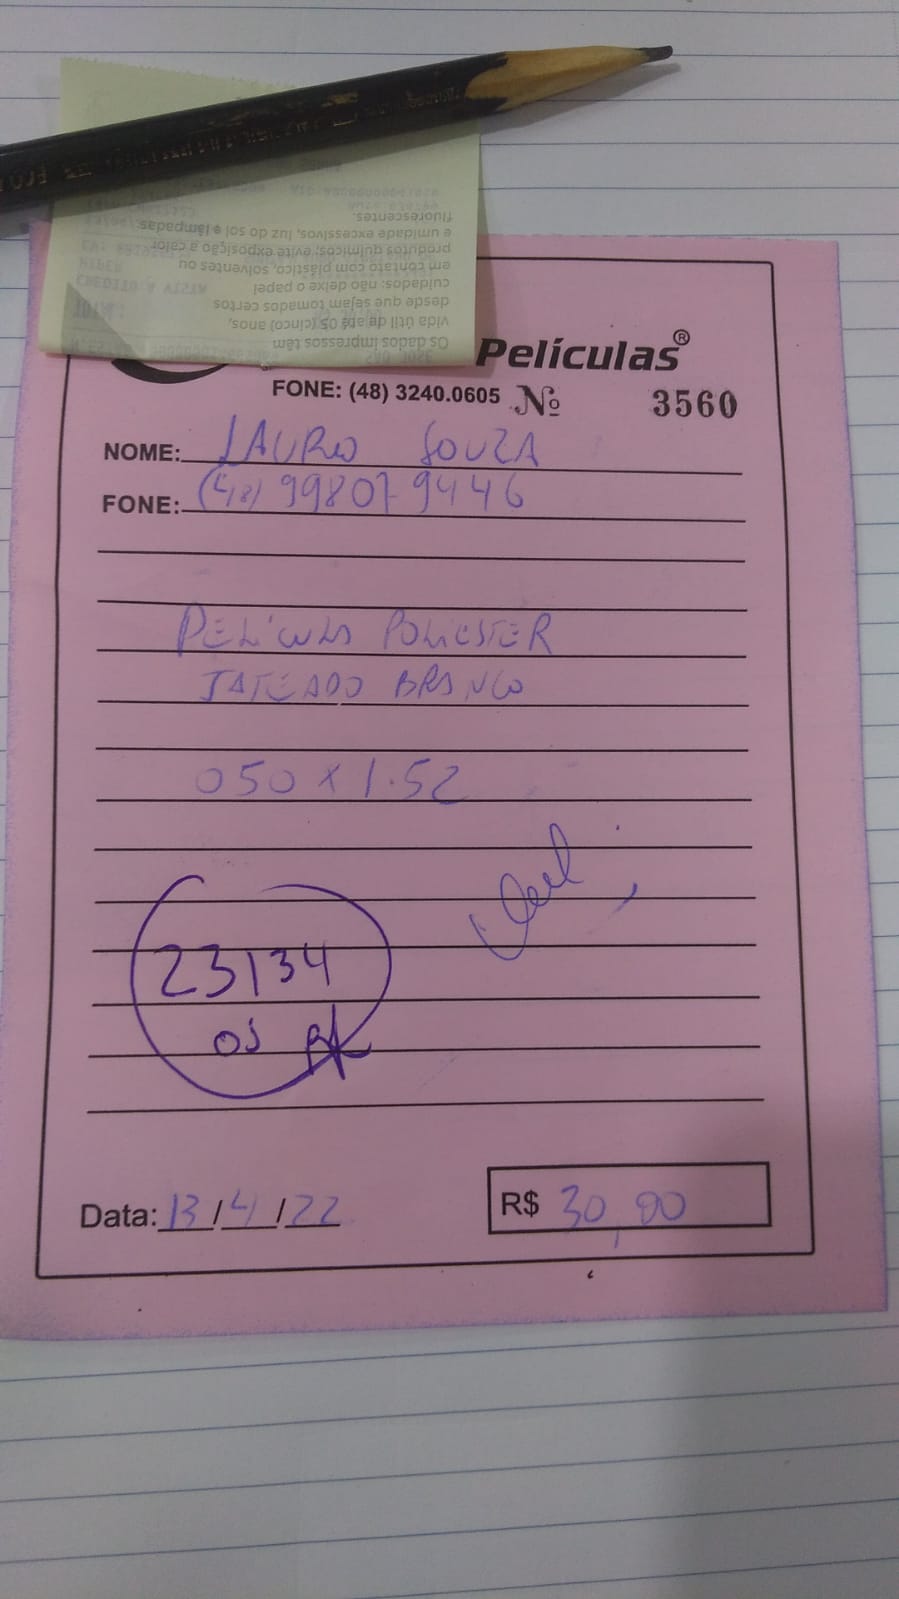 Os dados impressos têm
vida útil de até 05 (cinco) anos,
desde que sejam tomados certos
cuidados: não deixe o papel
em contato com plástico, solventes ou
produtos químicos; evite exposição a calor
e umidade excessivos, luz do sol e lâmpadas
fluorescentes.
Películas®
FONE: (48) 3240.0605 Nº 3560
NOME: LAURO SOUZA
FONE: (48) 998079446
PELÍCULA POLIESTER
JATEADO BRANCO
050 x 1.52
23134
OS
Data: 13/4/22
R$ 30,00